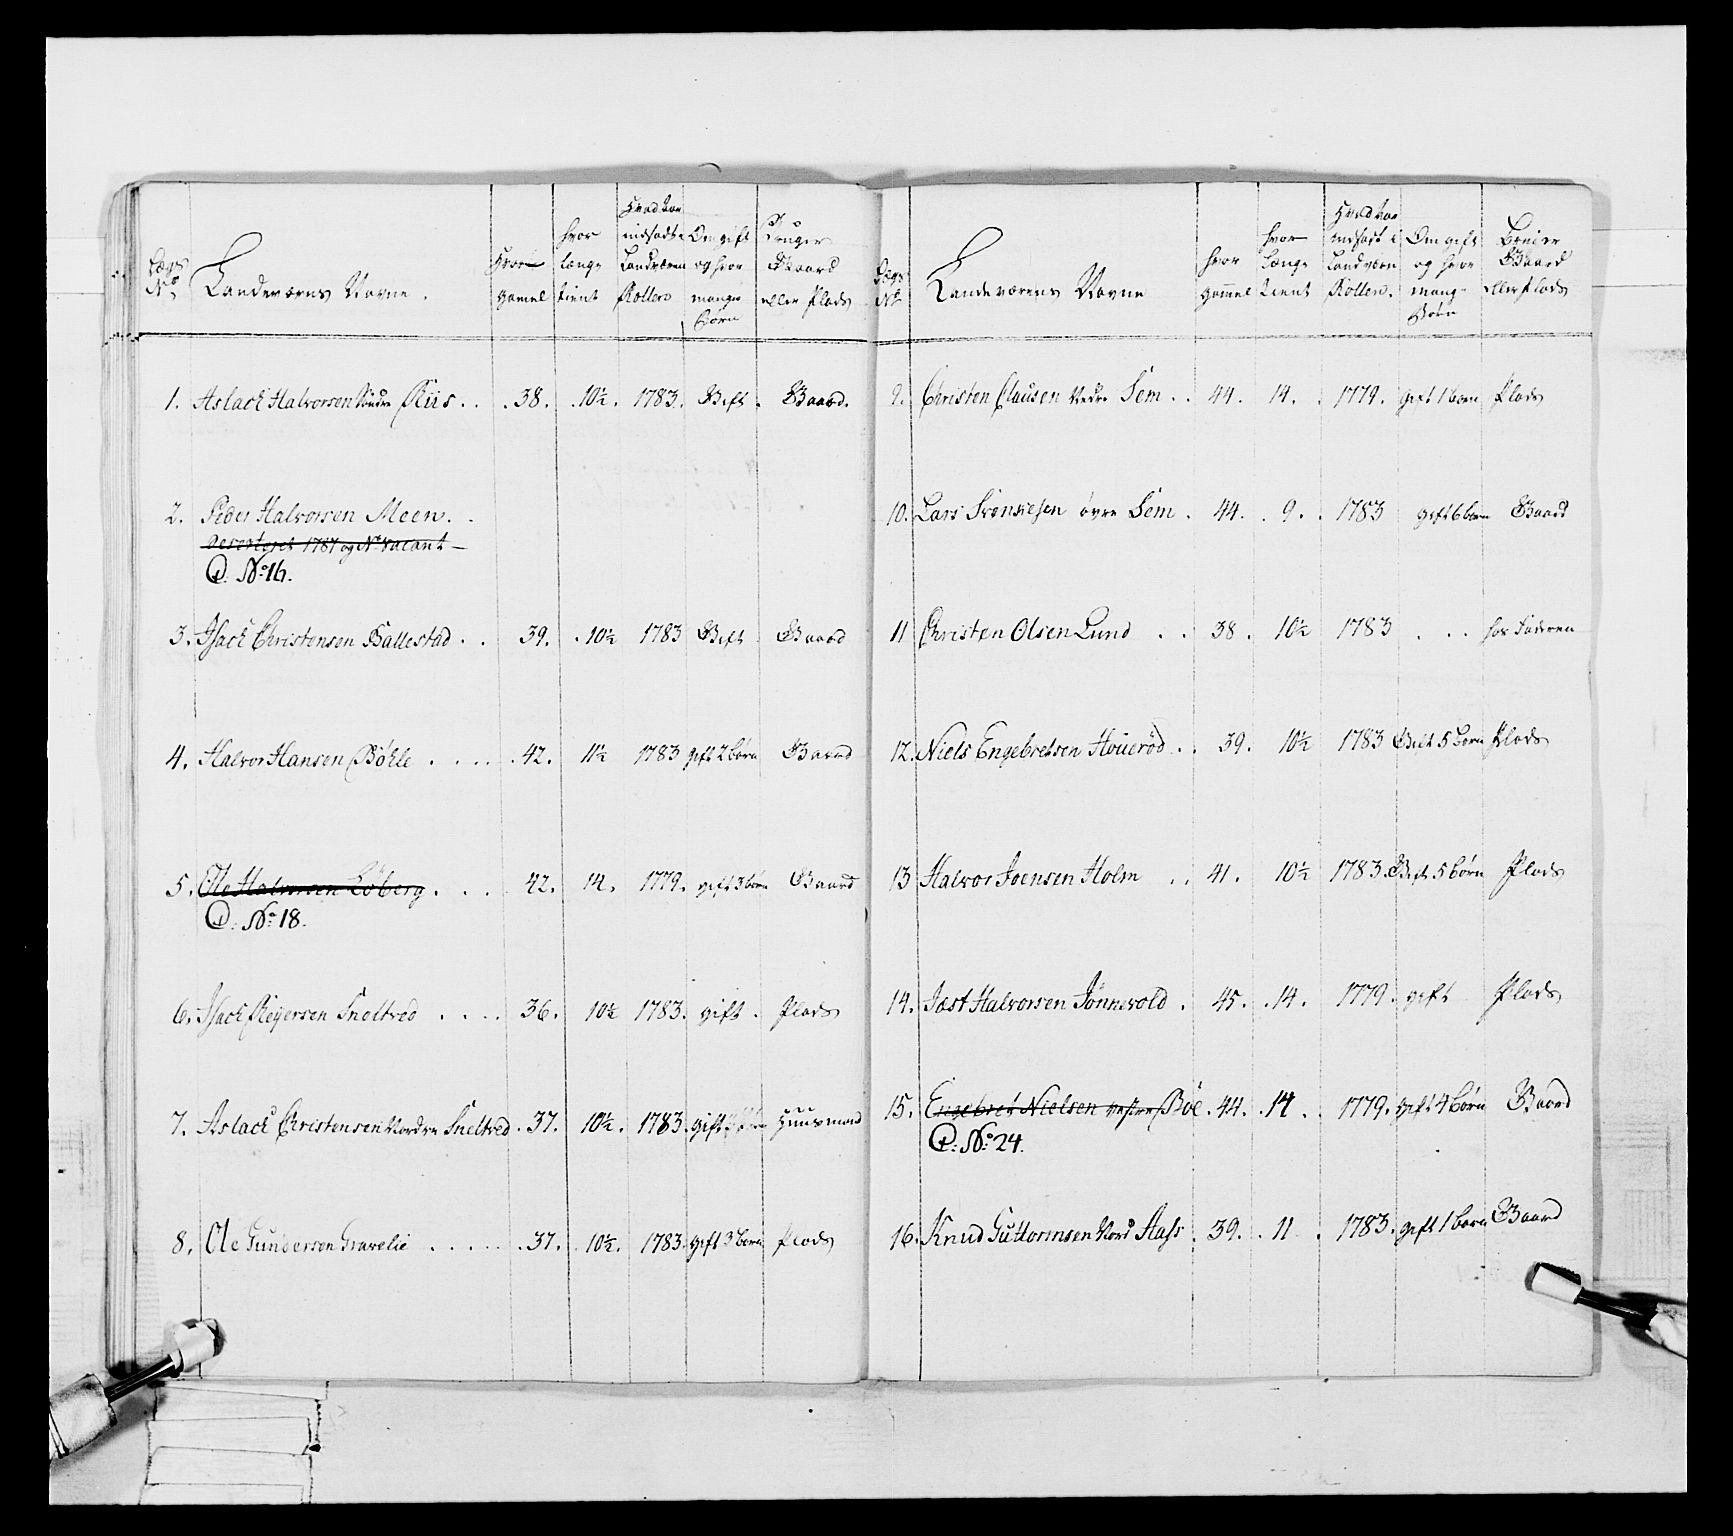 Lægs No
Landeværns Navne.
Hvor gamel
hvor længe tient
Hvad Aar indsadt i Landværn Rollen
Om gift og hvor mange Børn
Bruger Gaard eller Plads
1. Aslack Halvorsen Søndre Riis . . 38. 10½. 1783. Gift. Gaard.
2. Peder Halvorsen Meen. .
Deserteret 1787 og No vacant —
No 16.
3. Isack Christensen Ballestad . . 39. 10½ 1783 Gift Gaard
4. Halvor Hansen Bøhle . . . . 42. 11½ 1783 gift 2 børn Gaard
5. Ole Halvorsen Løberg . . . 42. 14. 1779. gift 3 børn Gaard
No 18.
6. Isack Reyersen Sneltved . . . . 36. 10½ 1783. gift. Plads
7. Aslack Christensen Nordre Sneltved. 37. 10½. 1783. gift Huusmand
8. Ole Gundersen Gravelie . . . . . 37. 10½. 1783. gift 3 børn Plads
Lægs No
Landeværens Navne
hvor gamel
hvor Længe tient
Hvad Aar indsadt i Landværn Rollen.
Om gift og hvor mange Børn
Bruger Gaard eller Plads
9. Christen Clausen Nedre Sem . . 44. 14. . 1779. gift 1 børn Plads
10. Lars Svensksen øvre Sem . 44. . 9. . 1783 gift 6 børn Gaard
11 Christen Olsen Lund . . 38. 10½ 1783 . . . hos Faderen
12. Niels Engebretsen Houerød . . 39. 10½ 1783 Gift 5 børn Plads
13 Halvor Joensen Holm . . 41. 10½ 1783. Gift 5 børn Plads
14. Jast Halvorsen Jønnevold . 45. . 14. 1779. gift Plads
15. Engebret Nielsen vestre Bøe . 44. . 14 . . 1779. gift 4 børn Gaard
No 24.
16. Knud Guttormsen Nord Aass . 39. . 11 . 1783. gift 1 børn Gaard